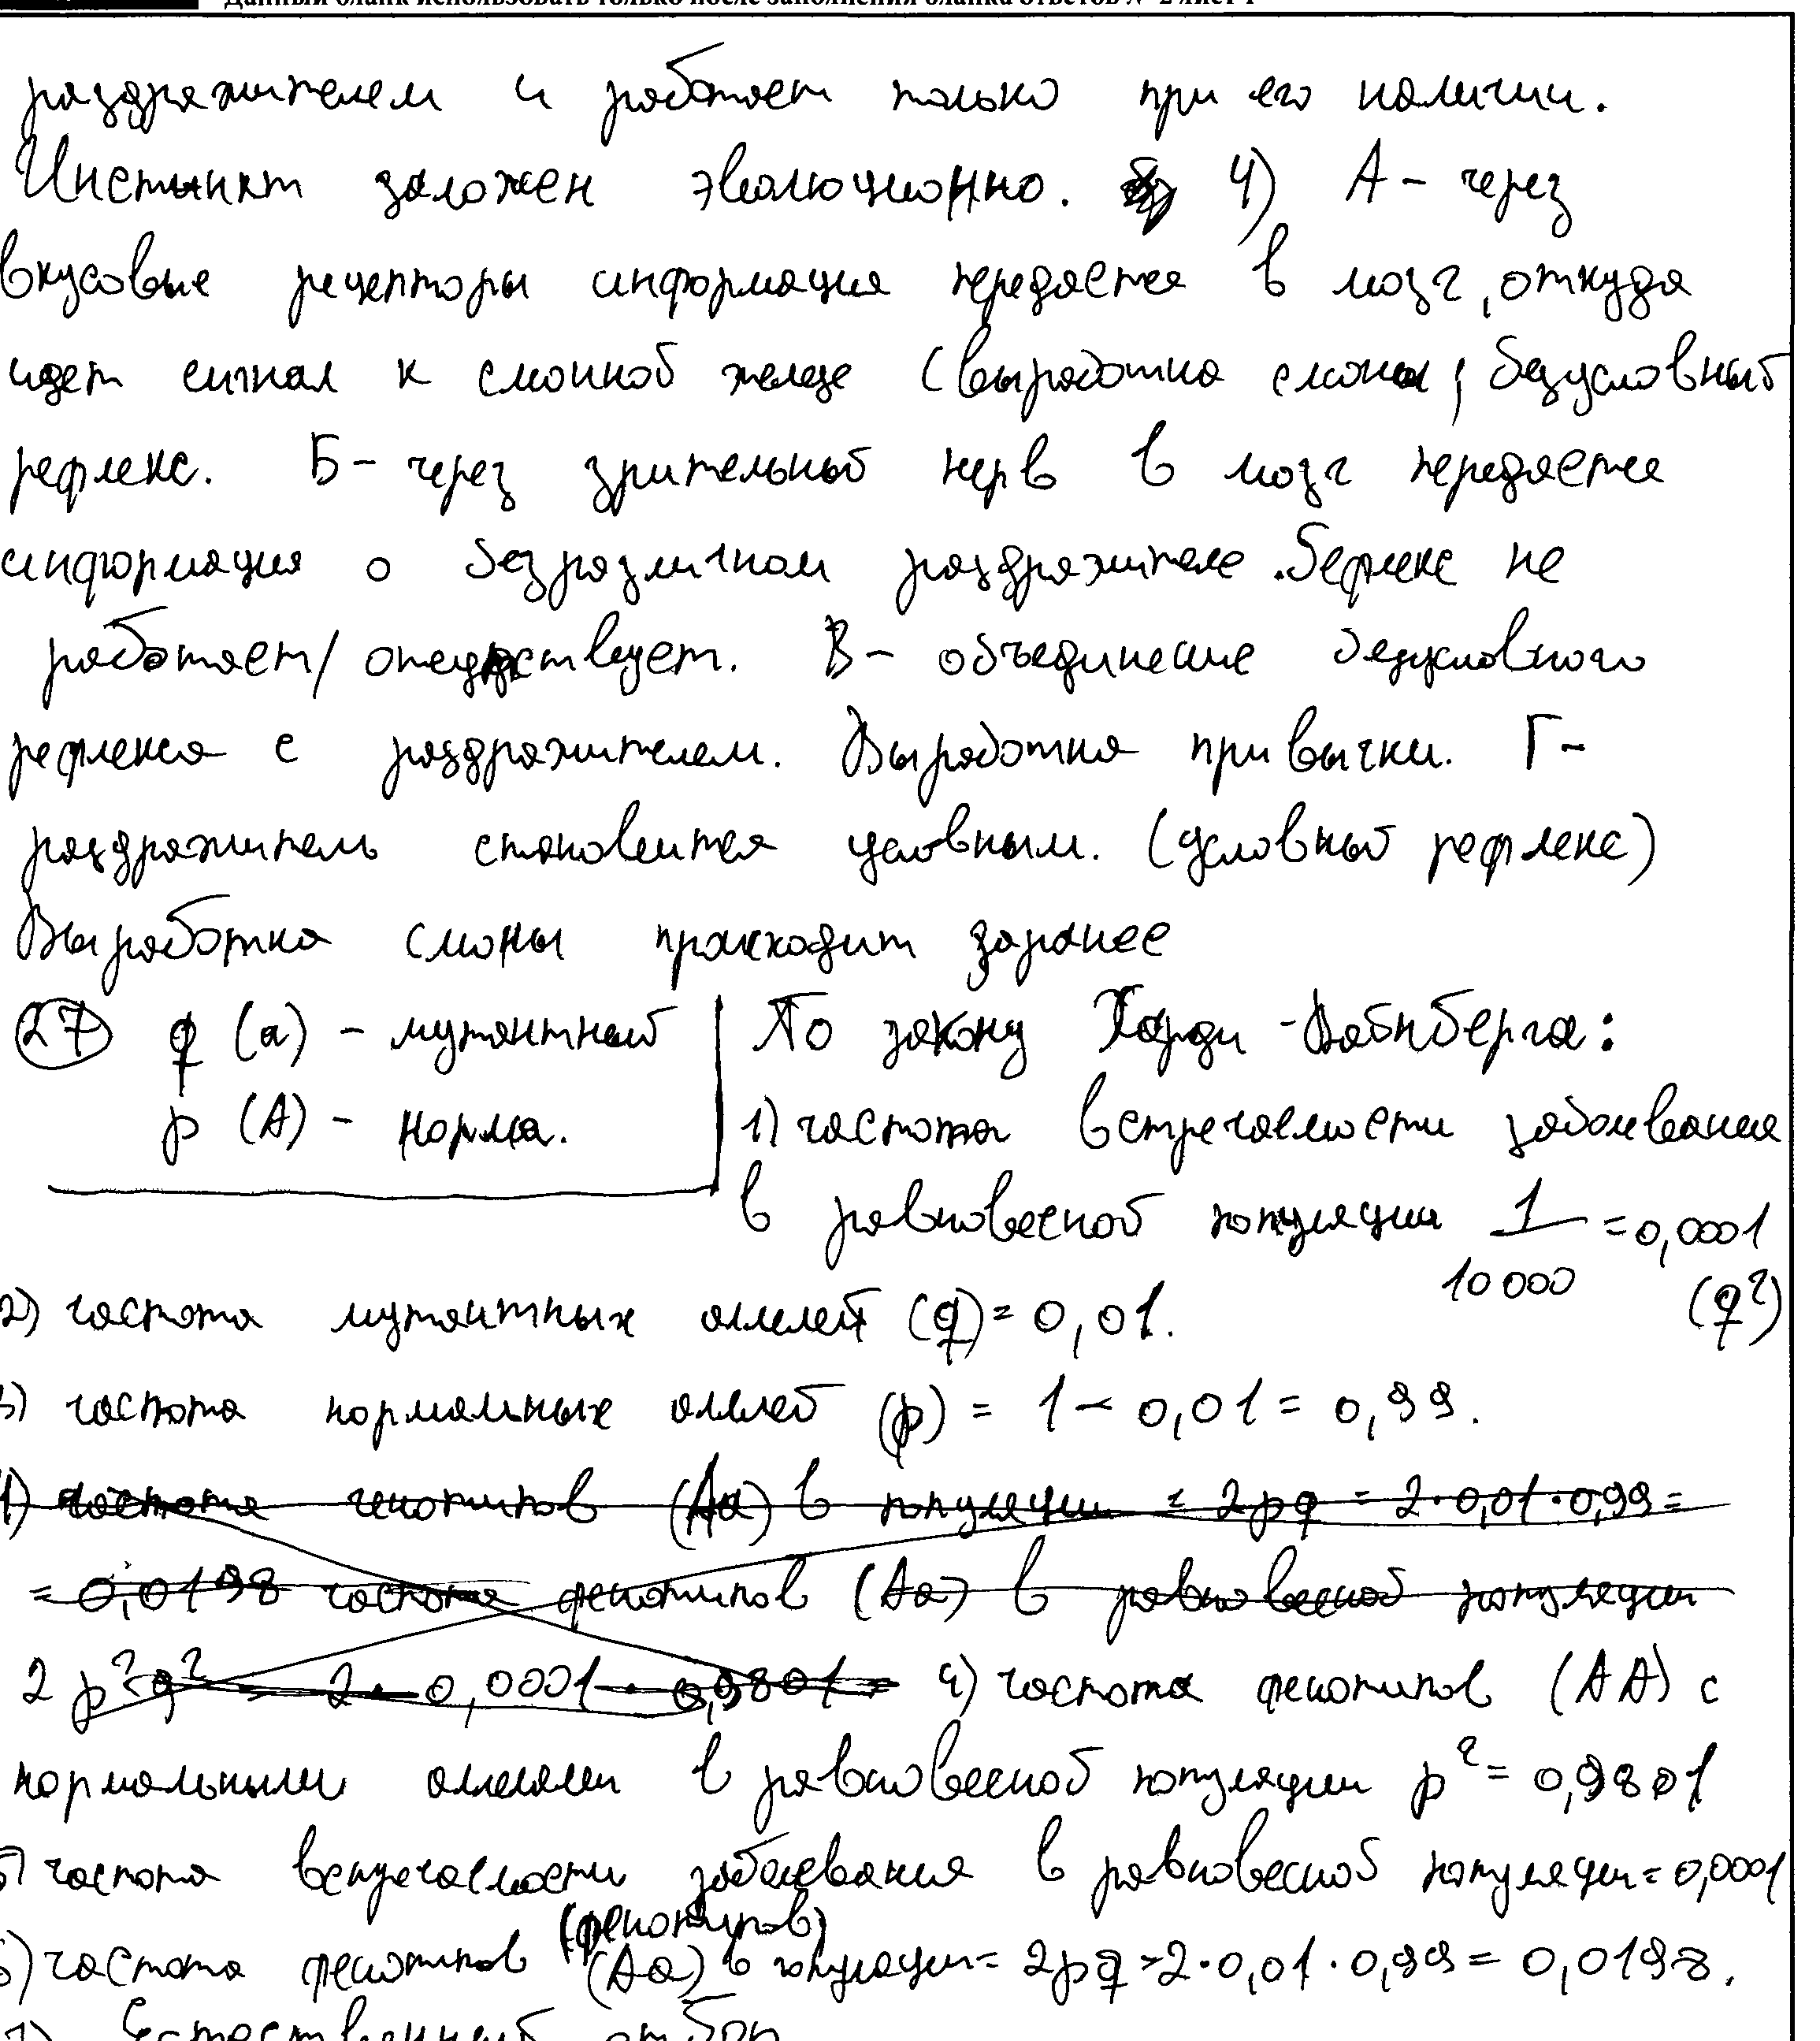 Данный бланк использовать только после заполнения бланка ответов № 2 лист 1
раздражителем и работает только при его наличии.
Инстинкт заложен эволюционно. 4) А - через
вкусовые рецепторы информация передается в мозг, откуда
идет сигнал к слюнной железе (выработка слюны; безусловный
рефлекс. Б - через зрительный нерв в мозг передается
информация о безразличном раздражителе. Рефлекс не
работает/ отсутствует. В - объединение безусловного
рефлекса с раздражителем. Выработка привычки. Г -
раздражитель становится условным. (условный рефлекс)
Выработка слюны происходит заранее
27 q (a) - мутантный
p (A) - норма.
По закону Харди - Вайнберга:
1) частота встречаемости заболевания
в равновесной популяции 1/10 000 = 0,0001
(q²)
2) частота мутантных аллелей (q) = 0,01.
3) частота нормальных аллелей (p) = 1 - 0,01 = 0,99.
4) частота генотипов (Aa) в популяции = 2pq = 2·0,01·0,99 =
= 0,0198 частота фенотипов (Aa) в равновесной популяции
2 p²q² = 2 · 0,0001 · 0,9801 = 4) частота фенотипов (AA) с
нормальными аллелями в равновесной популяции p² = 0,9801
5) частота встречаемости заболевания в равновесной популяции = 0,0001
(фенотипов)
6) частота фенотипов (Aa) в популяции = 2pq = 2·0,01·0,99 = 0,0198.
7) Естественный отбор